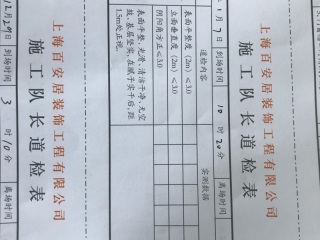 上海百安居装饰工程有限公司
施工队长道检表
月7日 到场时间 10 时 20 分 离场时间
道检内容 实测数据
表面平整度,(2m)≤3.0
立面垂直度,(2m)≤3.0
阴阳角方正≤3.0
表面平整、光滑、清洁干净,无空
鼓,基层坚实,在腻子实干后,距
1.5m处正视。
上海百安居装饰工程有限公司
施工队长道检表
12月21日 到场时间 3 时 10 分 离场时间